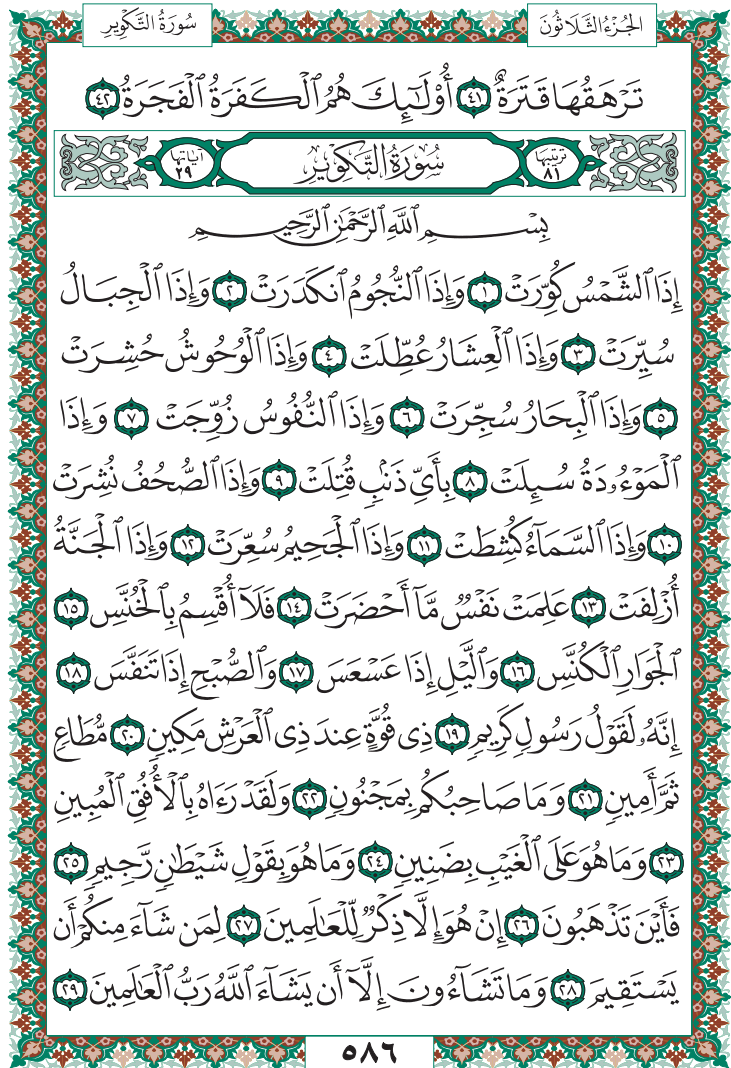 الجُزْءُ الثَّلَاثُونَ
سُورَةُ التَّكْوِيرِ
تَرْهَقُهَا قَتَرَةٌ ٤١ أُوْلَٰٓئِكَ هُمُ ٱلْكَفَرَةُ ٱلْفَجَرَةُ ٤٢
ترتيبها ٨١ سُورَةُ التَّكْوِيرِ آياتها ٢٩
بِسْمِ ٱللَّهِ ٱلرَّحْمَٰنِ ٱلرَّحِيمِ
إِذَا ٱلشَّمْسُ كُوِّرَتْ ١ وَإِذَا ٱلنُّجُومُ ٱنكَدَرَتْ ٢ وَإِذَا ٱلْجِبَالُ
سُيِّرَتْ ٣ وَإِذَا ٱلْعِشَارُ عُطِّلَتْ ٤ وَإِذَا ٱلْوُحُوشُ حُشِرَتْ
٥ وَإِذَا ٱلْبِحَارُ سُجِّرَتْ ٦ وَإِذَا ٱلنُّفُوسُ زُوِّجَتْ ٧ وَإِذَا
ٱلْمَوْءُۥدَةُ سُئِلَتْ ٨ بِأَىِّ ذَنۢبٍ قُتِلَتْ ٩ وَإِذَا ٱلصُّحُفُ نُشِرَتْ
١٠ وَإِذَا ٱلسَّمَآءُ كُشِطَتْ ١١ وَإِذَا ٱلْجَحِيمُ سُعِّرَتْ ١٢ وَإِذَا ٱلْجَنَّةُ
أُزْلِفَتْ ١٣ عَلِمَتْ نَفْسٌ مَّآ أَحْضَرَتْ ١٤ فَلَآ أُقْسِمُ بِٱلْخُنَّسِ ١٥
ٱلْجَوَارِ ٱلْكُنَّسِ ١٦ وَٱلَّيْلِ إِذَا عَسْعَسَ ١٧ وَٱلصُّبْحِ إِذَا تَنَفَّسَ ١٨
إِنَّهُۥ لَقَوْلُ رَسُولٍ كَرِيمٍ ١٩ ذِى قُوَّةٍ عِندَ ذِى ٱلْعَرْشِ مَكِينٍ ٢٠ مُّطَاعٍ
ثَمَّ أَمِينٍ ٢١ وَمَا صَاحِبُكُم بِمَجْنُونٍ ٢٢ وَلَقَدْ رَءَاهُ بِٱلْأُفُقِ ٱلْمُبِينِ
٢٣ وَمَا هُوَ عَلَى ٱلْغَيْبِ بِضَنِينٍ ٢٤ وَمَا هُوَ بِقَوْلِ شَيْطَٰنٍ رَّجِيمٍ ٢٥
فَأَيْنَ تَذْهَبُونَ ٢٦ إِنْ هُوَ إِلَّا ذِكْرٌ لِّلْعَٰلَمِينَ ٢٧ لِمَن شَآءَ مِنكُمْ أَن
يَسْتَقِيمَ ٢٨ وَمَا تَشَآءُونَ إِلَّآ أَن يَشَآءَ ٱللَّهُ رَبُّ ٱلْعَٰلَمِينَ ٢٩
٥٨٦